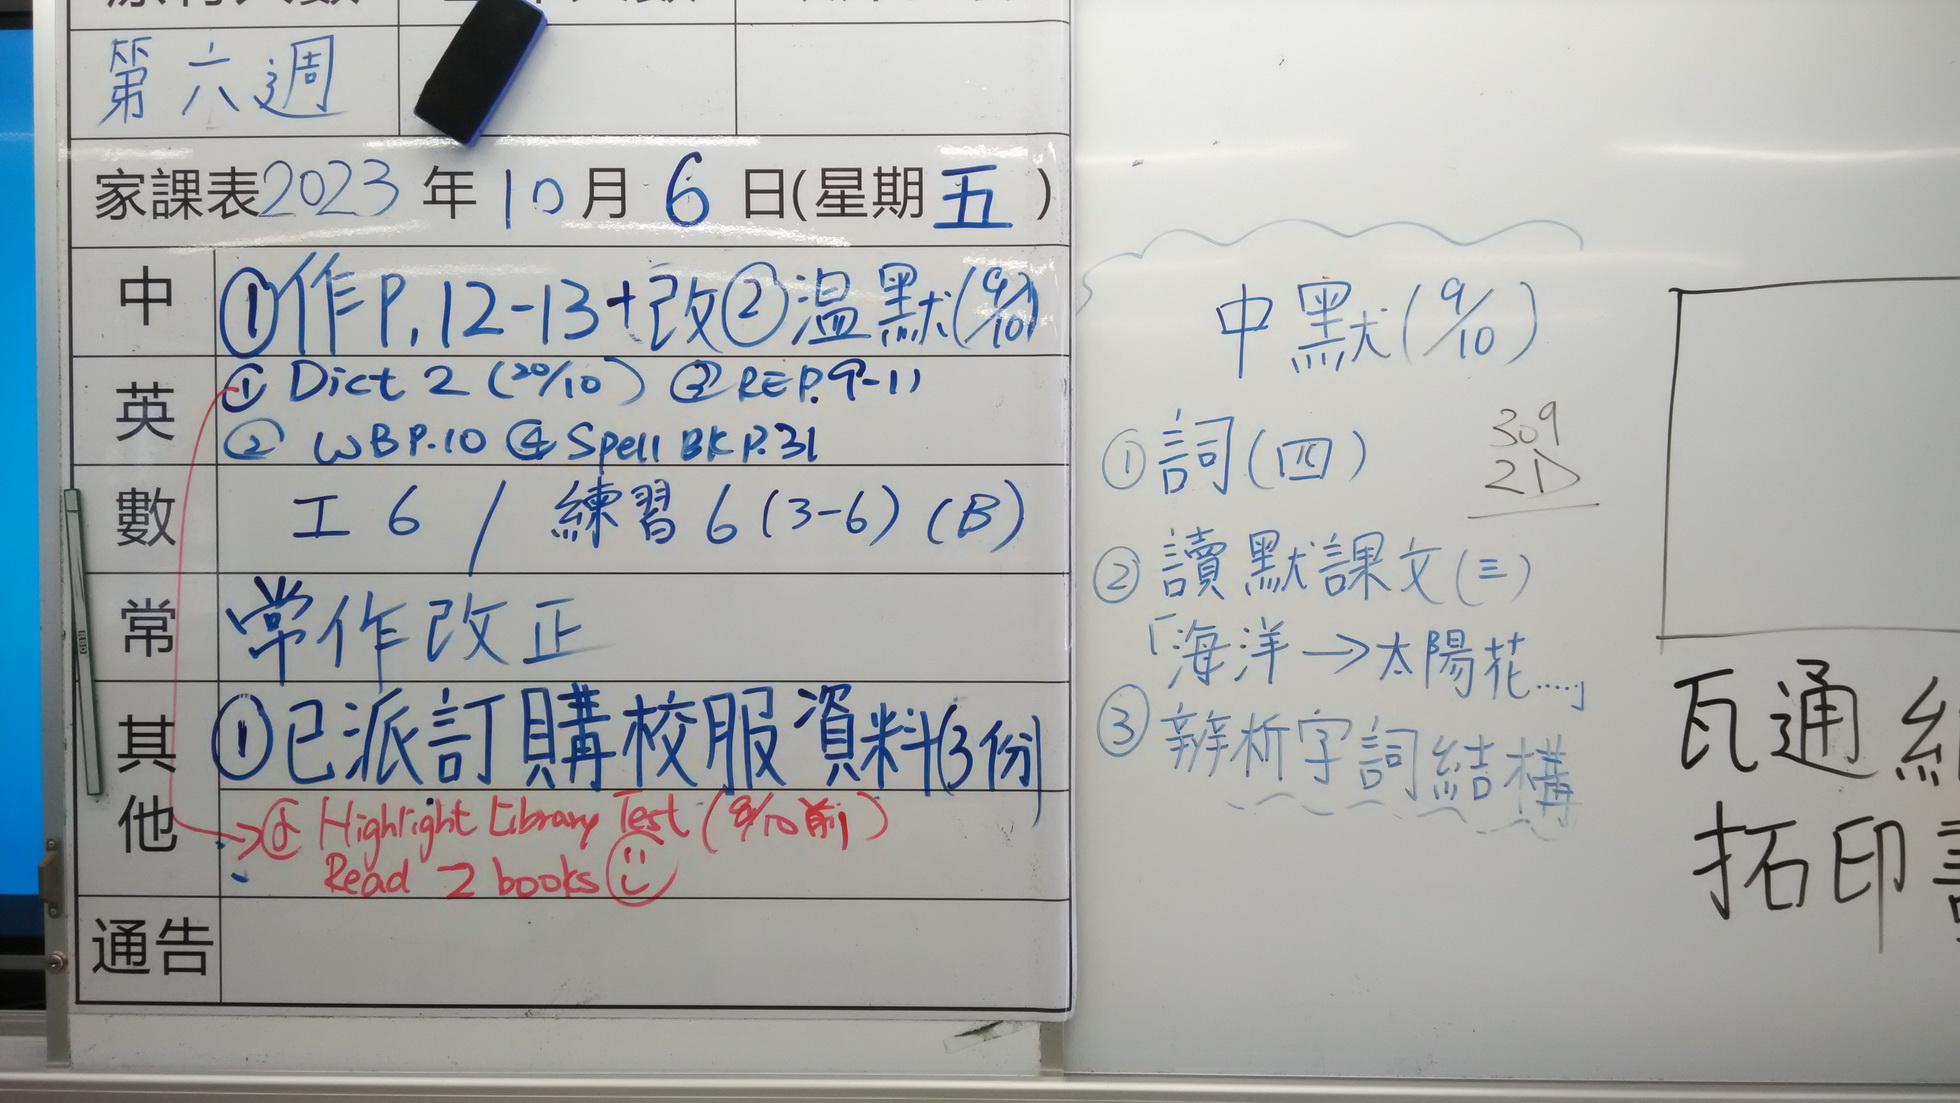 第六週
家課表2023年10月6日(星期五)
中 ①作P.12-13+改②溫默(9/10)
英 ① Dict 2 (20/10) ③ RE P.9-11
② WB P.10 ④ Spell BK P.31
數 工 6 / 練習 6 (3-6) (B)
常 常作改正
其他 ①已派訂購校服資料(3份)
Highlight Library Test (9/10前)
Read 2 books
通告
中默(9/10)
①詞(四)
309
②讀默課文(三)
「海洋→太陽花....」
③辨析字詞結構
瓦通
拓印